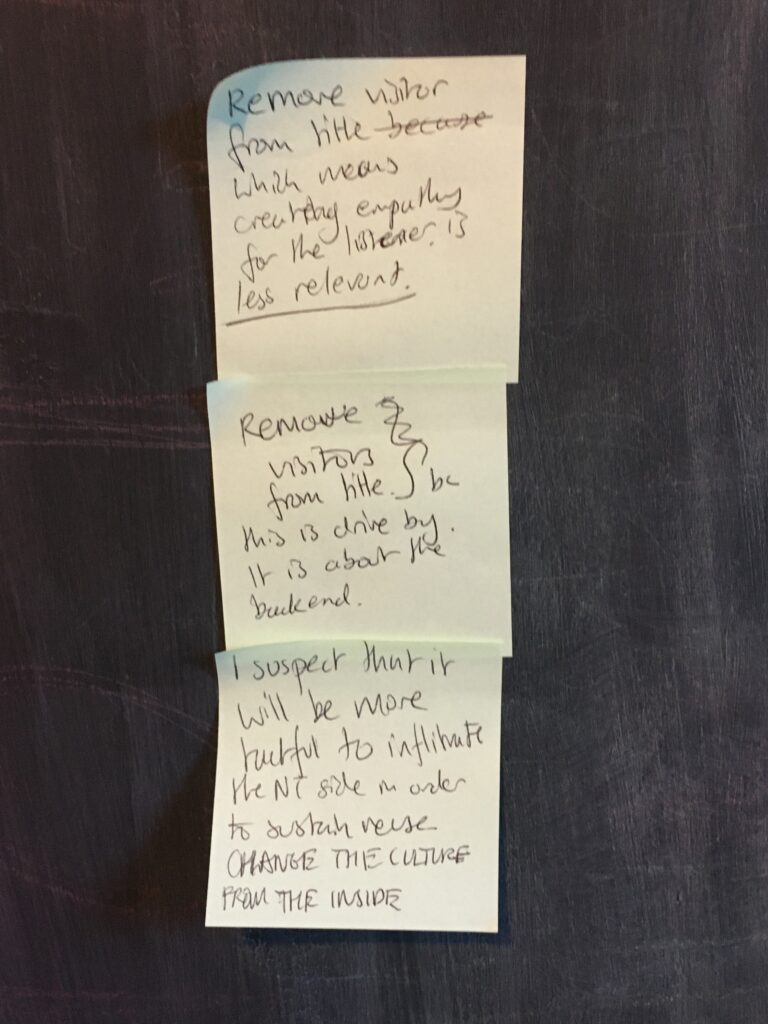 Remove visitor
from title because
which means
creating empathy
for the listener. is
less relevant.
Remove
visitors
from title. be
this is drive by.
It is about the
backend.
I suspect that it
will be more
tactful to inflitrate
the NT side in order
to sustain reuse
CHANGE THE CULTURE
FROM THE INSIDE